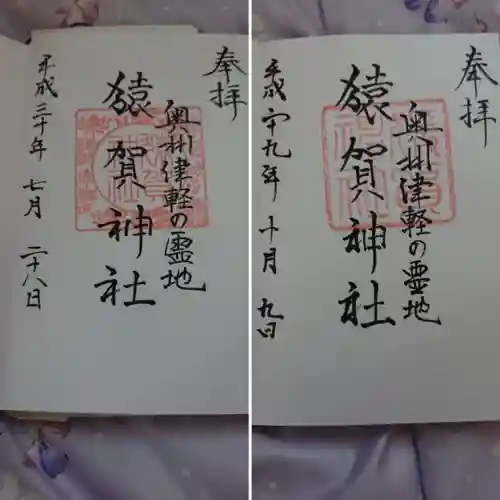 奉拝
奥州津軽の霊地
猿賀神社
平成三十年 七月 二十八日
奉拝
奥州津軽の霊地
猿賀神社
平成二十九年 十月 九日